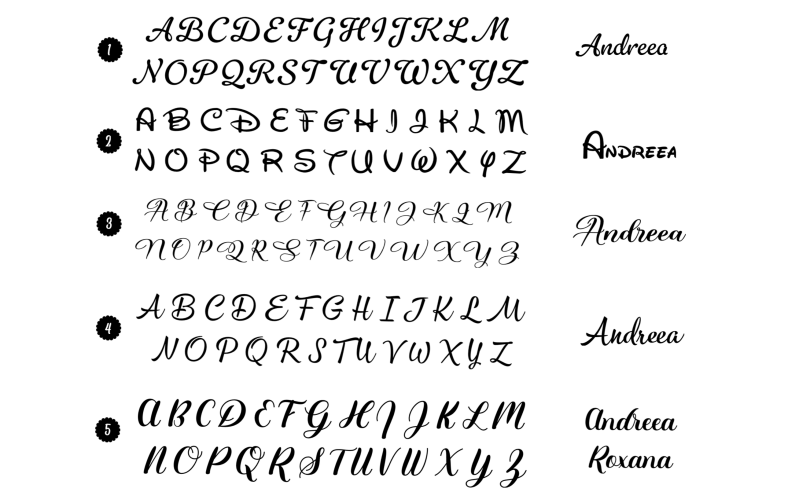 1 ABCDEFGHIJKLM Andreea
NOPQRSTUVWXYZ
2 A B C D E F G H I J K L M
N O P Q R S T U V W X Y Z ANDREEA
3 A B C D E F G H I J K L M
N O P Q R S T U V W X Y Z Andreea
4 A B C D E F G H I J K L M
N O P Q R S T U V W X Y Z Andreea
5 A B C D E F G H I J K L M Andreea
N O P Q R S T U V W X Y Z Roxana